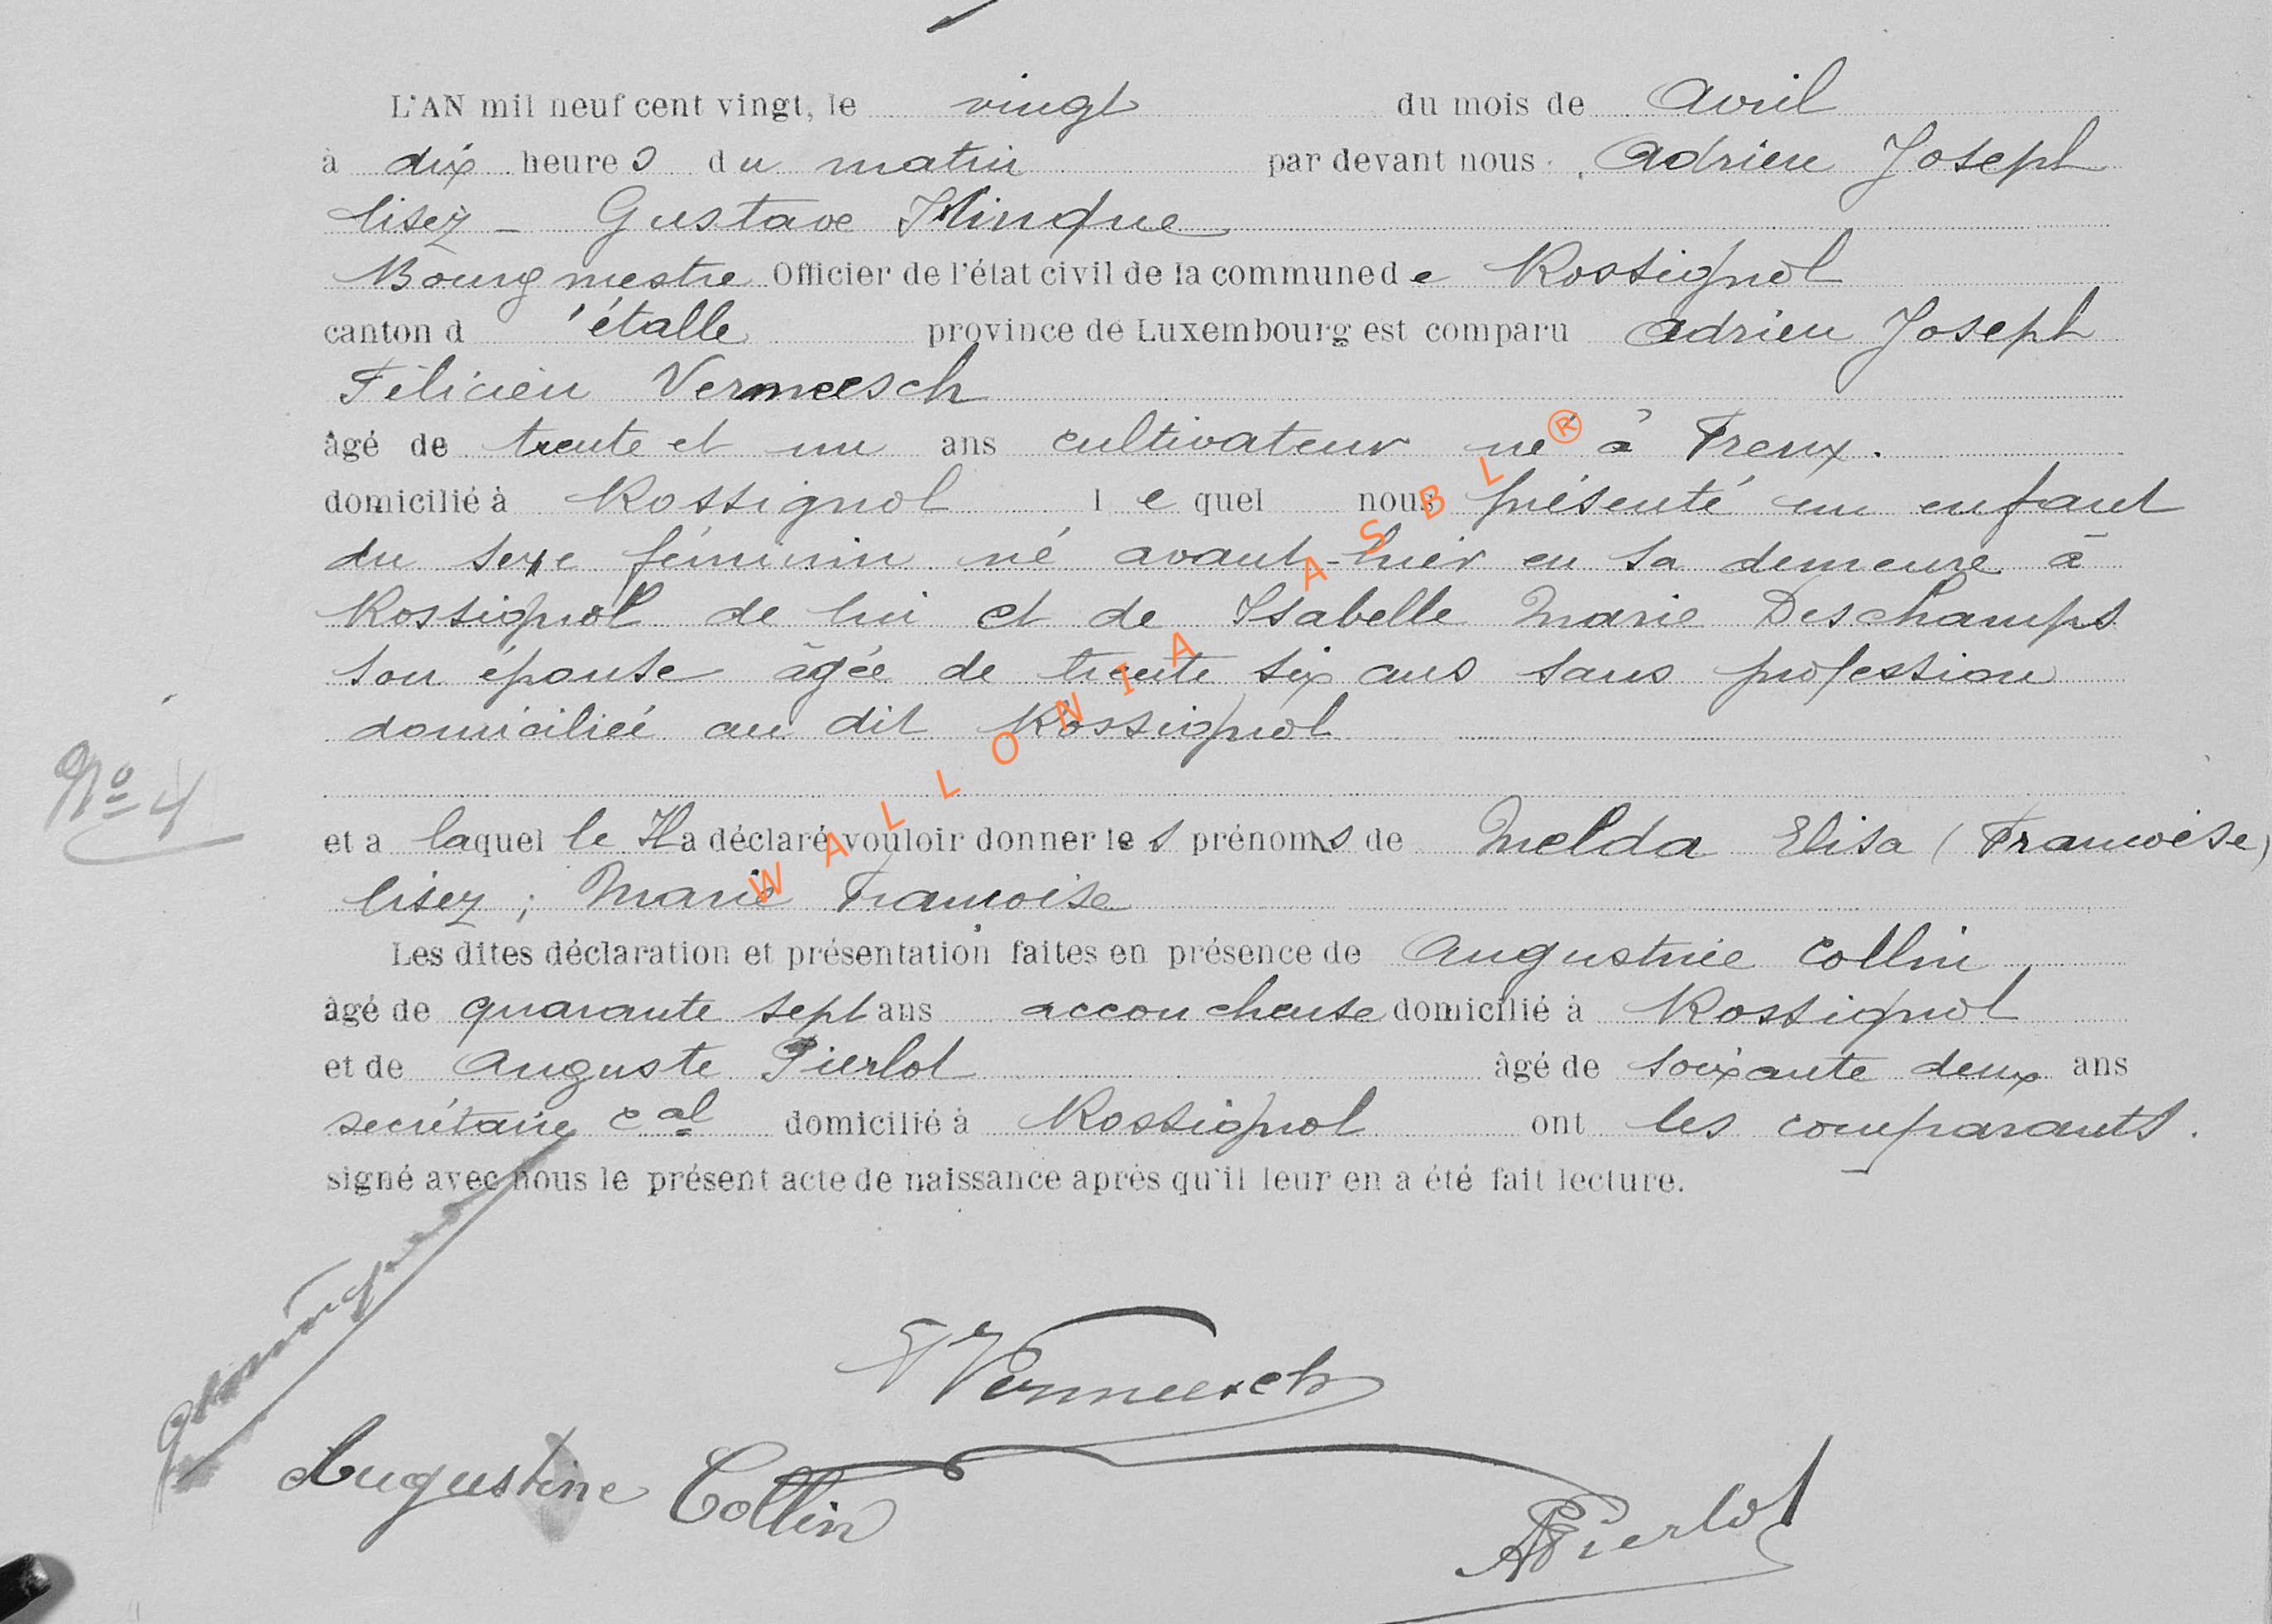 L'AN mil neuf cent vingt, le vingt du mois de Avril
à dix heures du matin par devant nous Adrien Joseph
lisez - Gustave Hinque
Bourgmestre Officier de l'état civil de la commune de Rossignol
canton d'étalle province de Luxembourg est comparu Adrien Joseph
Félicien Vermeesch
âgé de trente et un ans cultivateur né à Freux.
domicilié à Rossignol lequel nous présenté un enfant
du sexe féminin né avant-hier en sa demeure à
Rossignol de lui et de Isabelle Marie Deschamps
son épouse âgée de trente six ans sans profession
domiciliée au dit Rossignol
No 4
et a laquelle Il a déclaré vouloir donner les prénoms de Melda Elisa (Francoise)
lisez ; Marie Francoise
Les dites déclaration et présentation faites en présence de Augustine Collin
âgé de quarante sept ans accoucheuse domicilié à Rossignol
et de Auguste Pierlot âgé de soixante deux ans
secrétaire cal domicilié à Rossignol ont les comparants.
signé avec nous le présent acte de naissance après qu'il leur en a été fait lecture.
Vermeesch
Augustine Collin
APierlot
WALLONIA ASBL ®